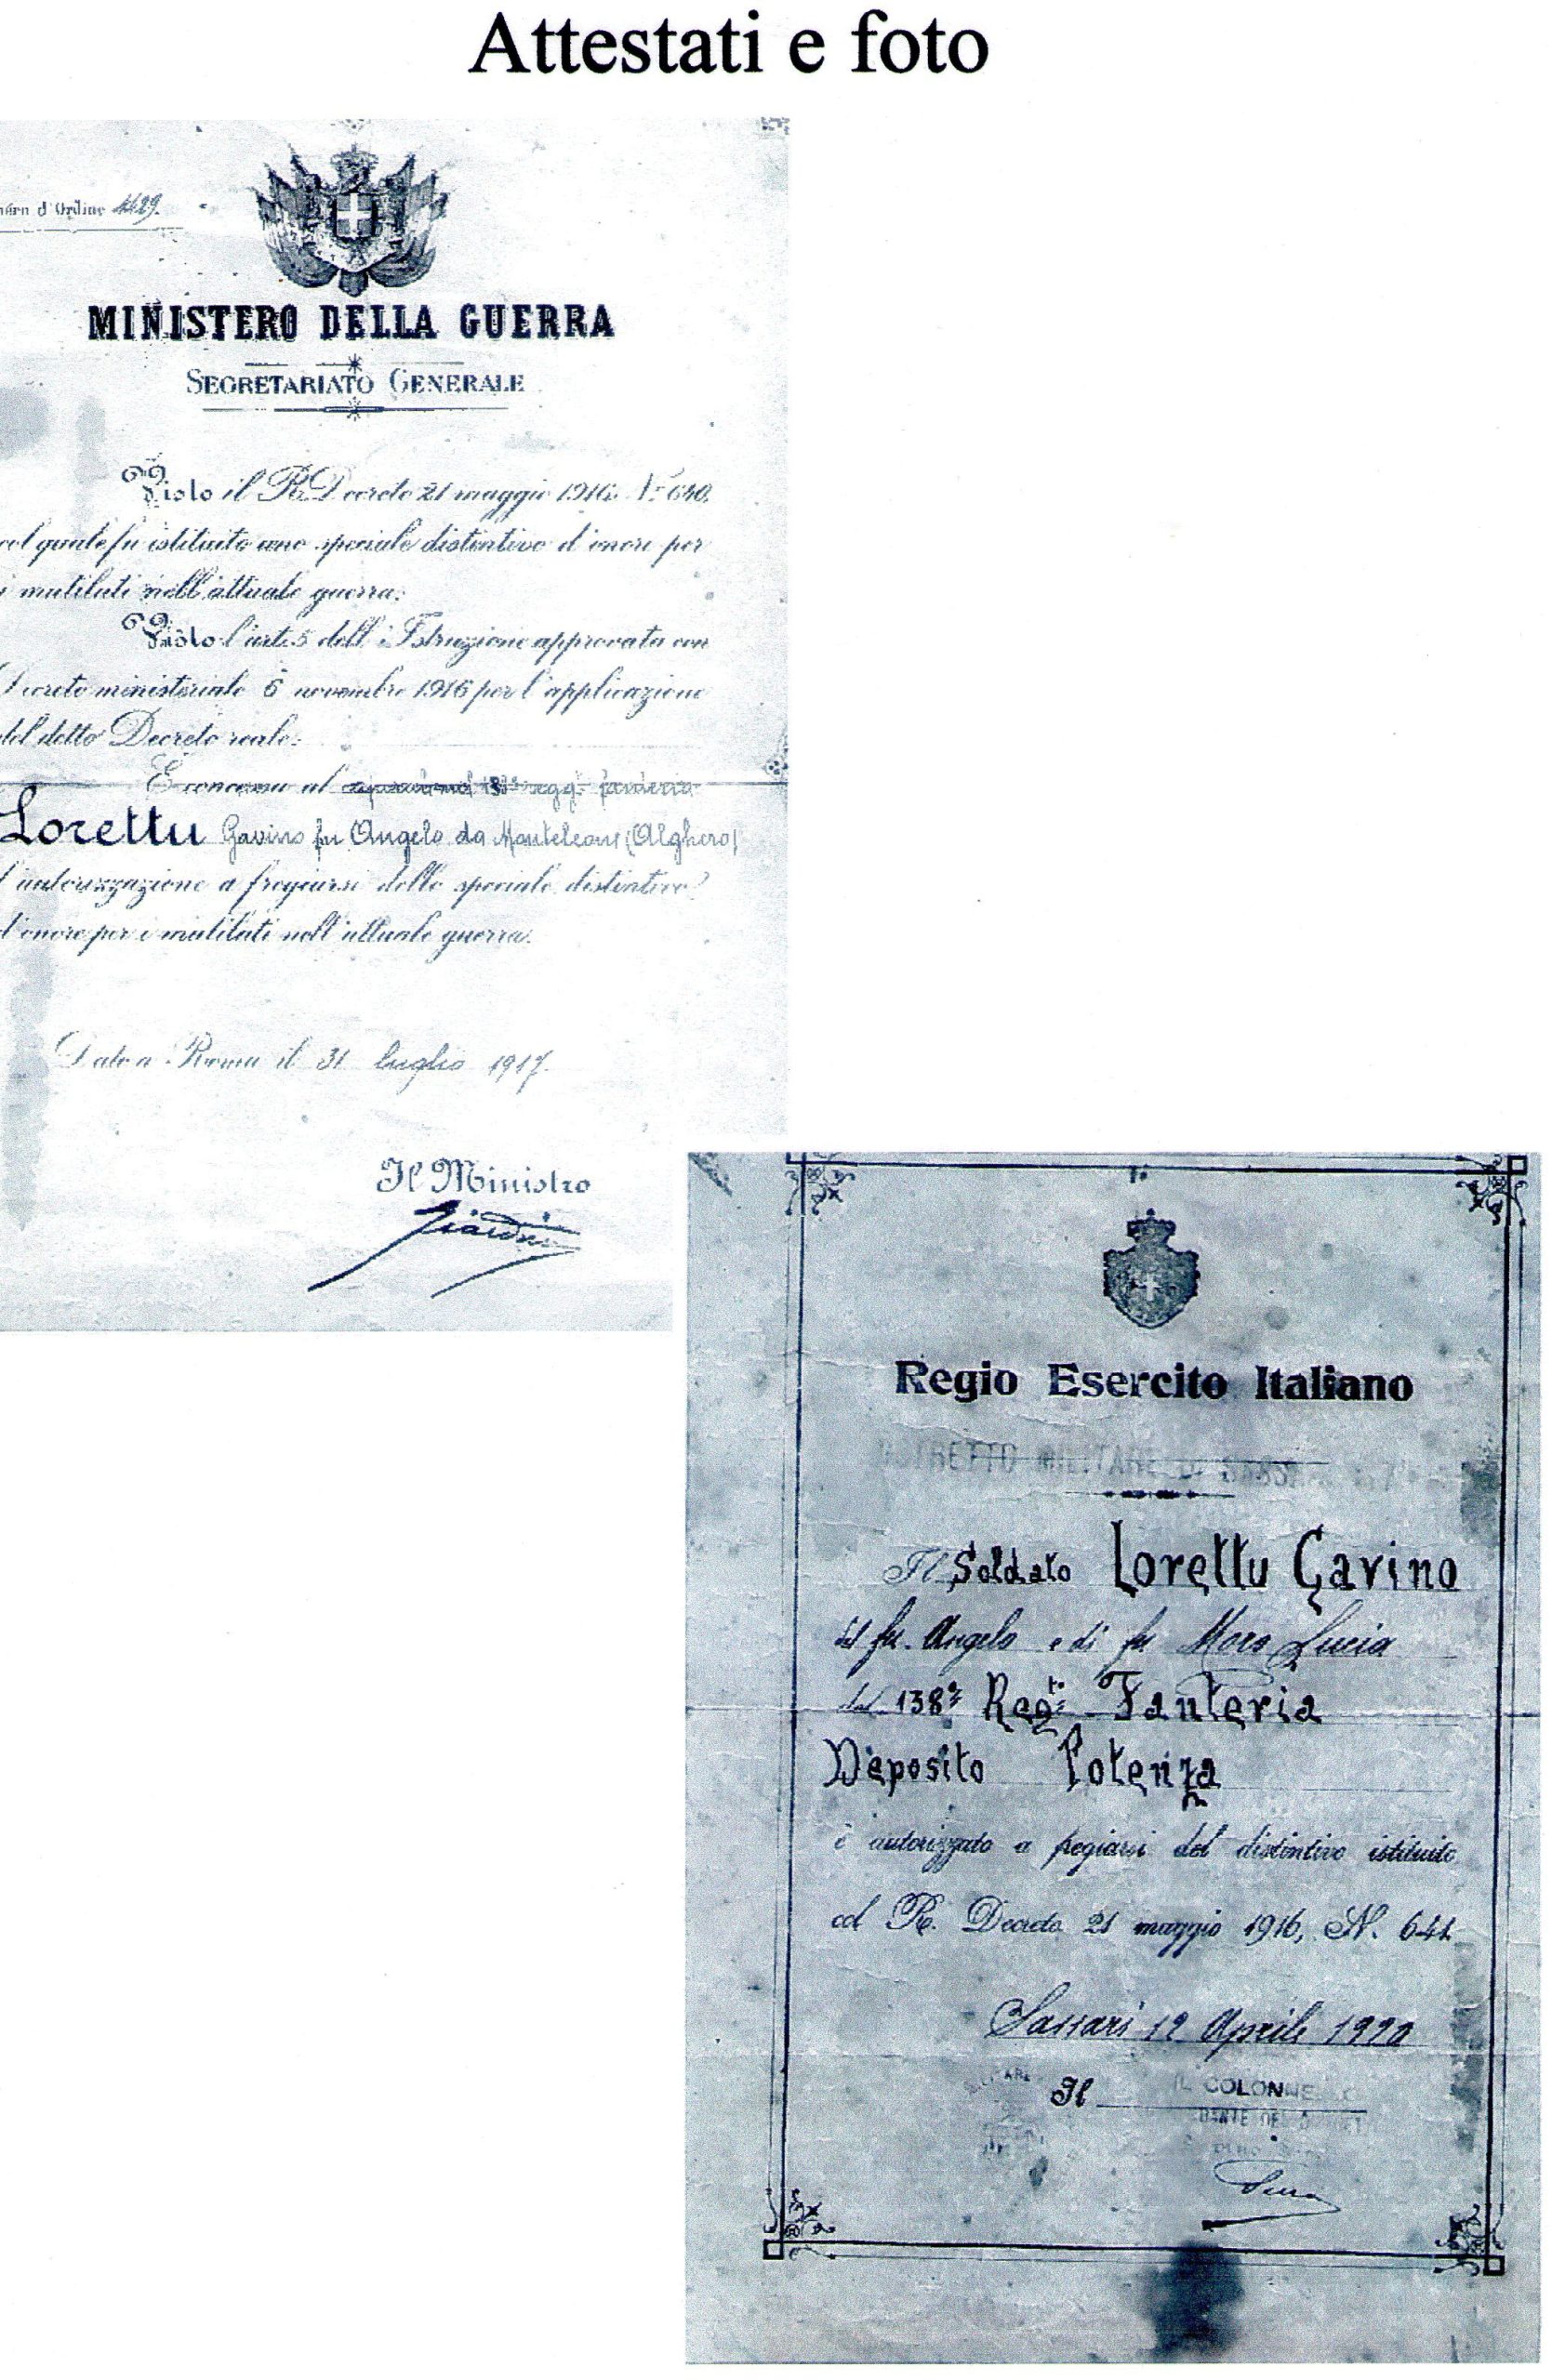 Attestati e foto
d'Ordine 4429.
MINISTERO DELLA GUERRA
SEGRETARIATO GENERALE
Visto il R. Decreto 21 maggio 1916 N.° 640.
col quale fu istituito uno speciale distintivo d'onore per
i mutilati nell'attuale guerra;
Visto l'art. 5 dell'Istruzione approvata con
Decreto ministeriale 6 novembre 1916 per l'applicazione
del detto Decreto reale:
È concessa al regg. fanteria
Lorettu Gavino fu Angelo da Monteleone (Alghero)
l'autorizzazione a fregiarsi dello speciale distintivo
d'onore per i mutilati nell'attuale guerra.
Dato a Roma il 31 luglio 1917.
Il Ministro
Giardino
Regio Esercito Italiano
DISTRETTO MILITARE DI
Il Soldato Lorettu Gavino
del fu. Angelo e di fu Moro Lucia
del 138º Regto. Fanteria
Deposito Potenza
è autorizzato a fregiarsi del distintivo istituito
col R. Decreto 21 maggio 1916, N. 641.
Sassari 12 Aprile 1920
Il IL COLONNELLO